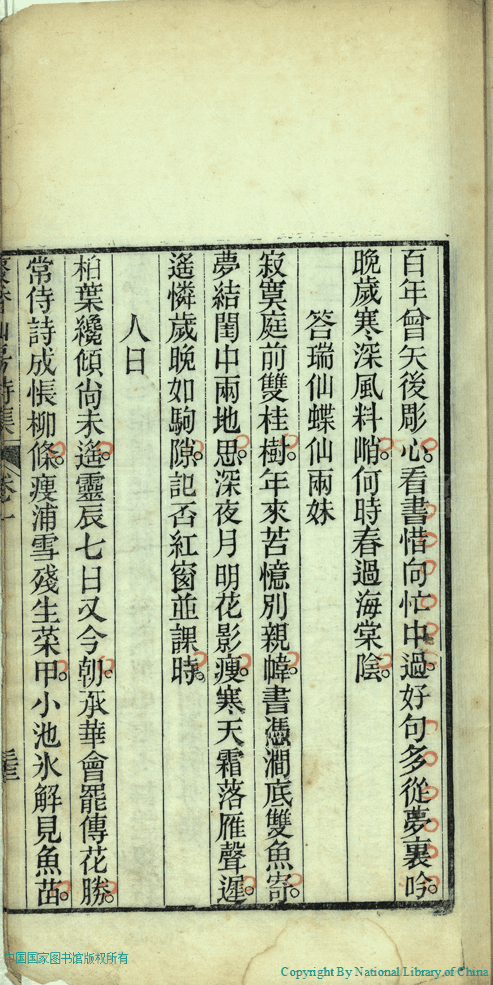 百年曾矢後彫心。看書惜向忙中過。好句多從夢裏吟。
晚歲寒深風料峭。何時春過海棠陰。
答瑞仙蝶仙兩妹
寂寞庭前雙桂樹。年來苦憶別親幃。書憑澗底雙魚寄。
夢結閨中兩地思。深夜月明花影瘦。寒天霜落雁聲遲。
遙憐歲晚如駒隙。記否紅窗並課時。
人日
柏葉纔傾尚未遙。靈辰七日又今朝。承華會罷傳花勝。
常侍詩成悵柳條。瘦浦雪殘生菜甲。小池氷解見魚苗。
卷一
中国国家图书馆版权所有
Copyright By National Library of China